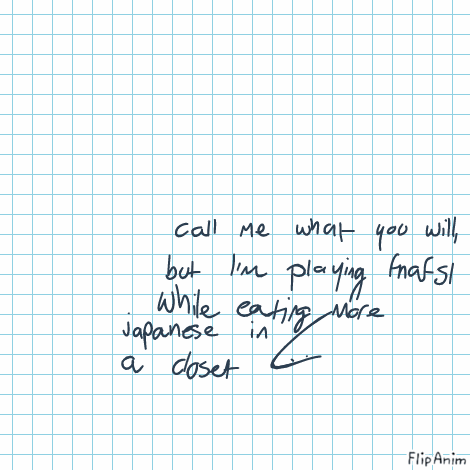 call me what you will,
but I'm playing fnafsl
while eating more
japanese in
a closet
FlipAnim